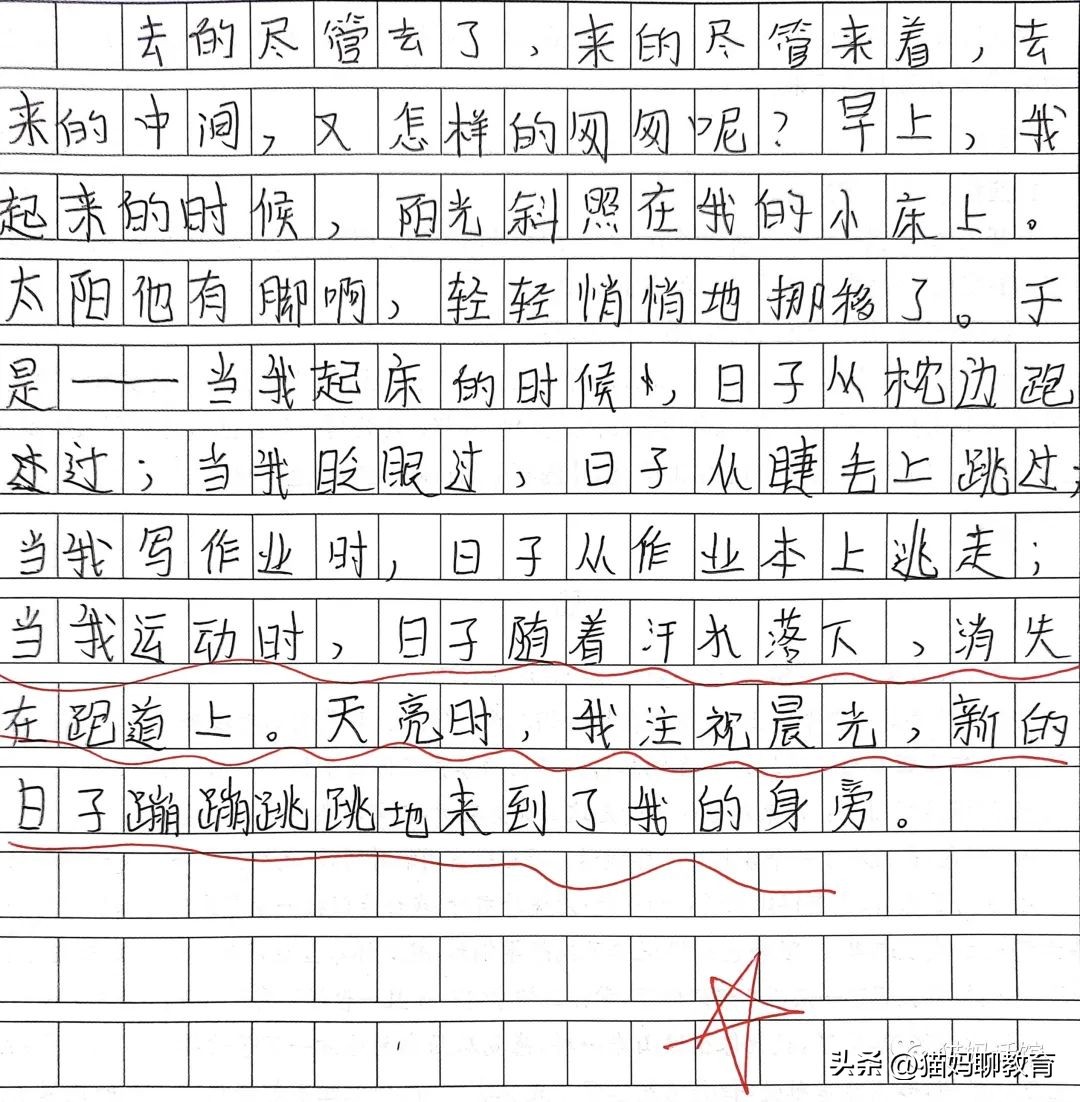 去的尽管去了，来的尽管来着，去
来的中间，又怎样的匆匆呢？早上，我
起来的时候，阳光斜照在我的小床上。
太阳他有脚啊，轻轻悄悄地挪移了。于
是——当我起床的时候，日子从枕边跑
过；当我眨眼过，日子从睫毛上跳过；
当我写作业时，日子从作业本上逃走；
当我运动时，日子随着汗水落下，消失
在跑道上。天亮时，我注视晨光，新的
日子蹦蹦跳跳地来到了我的身旁。
头条 @猫妈聊教育